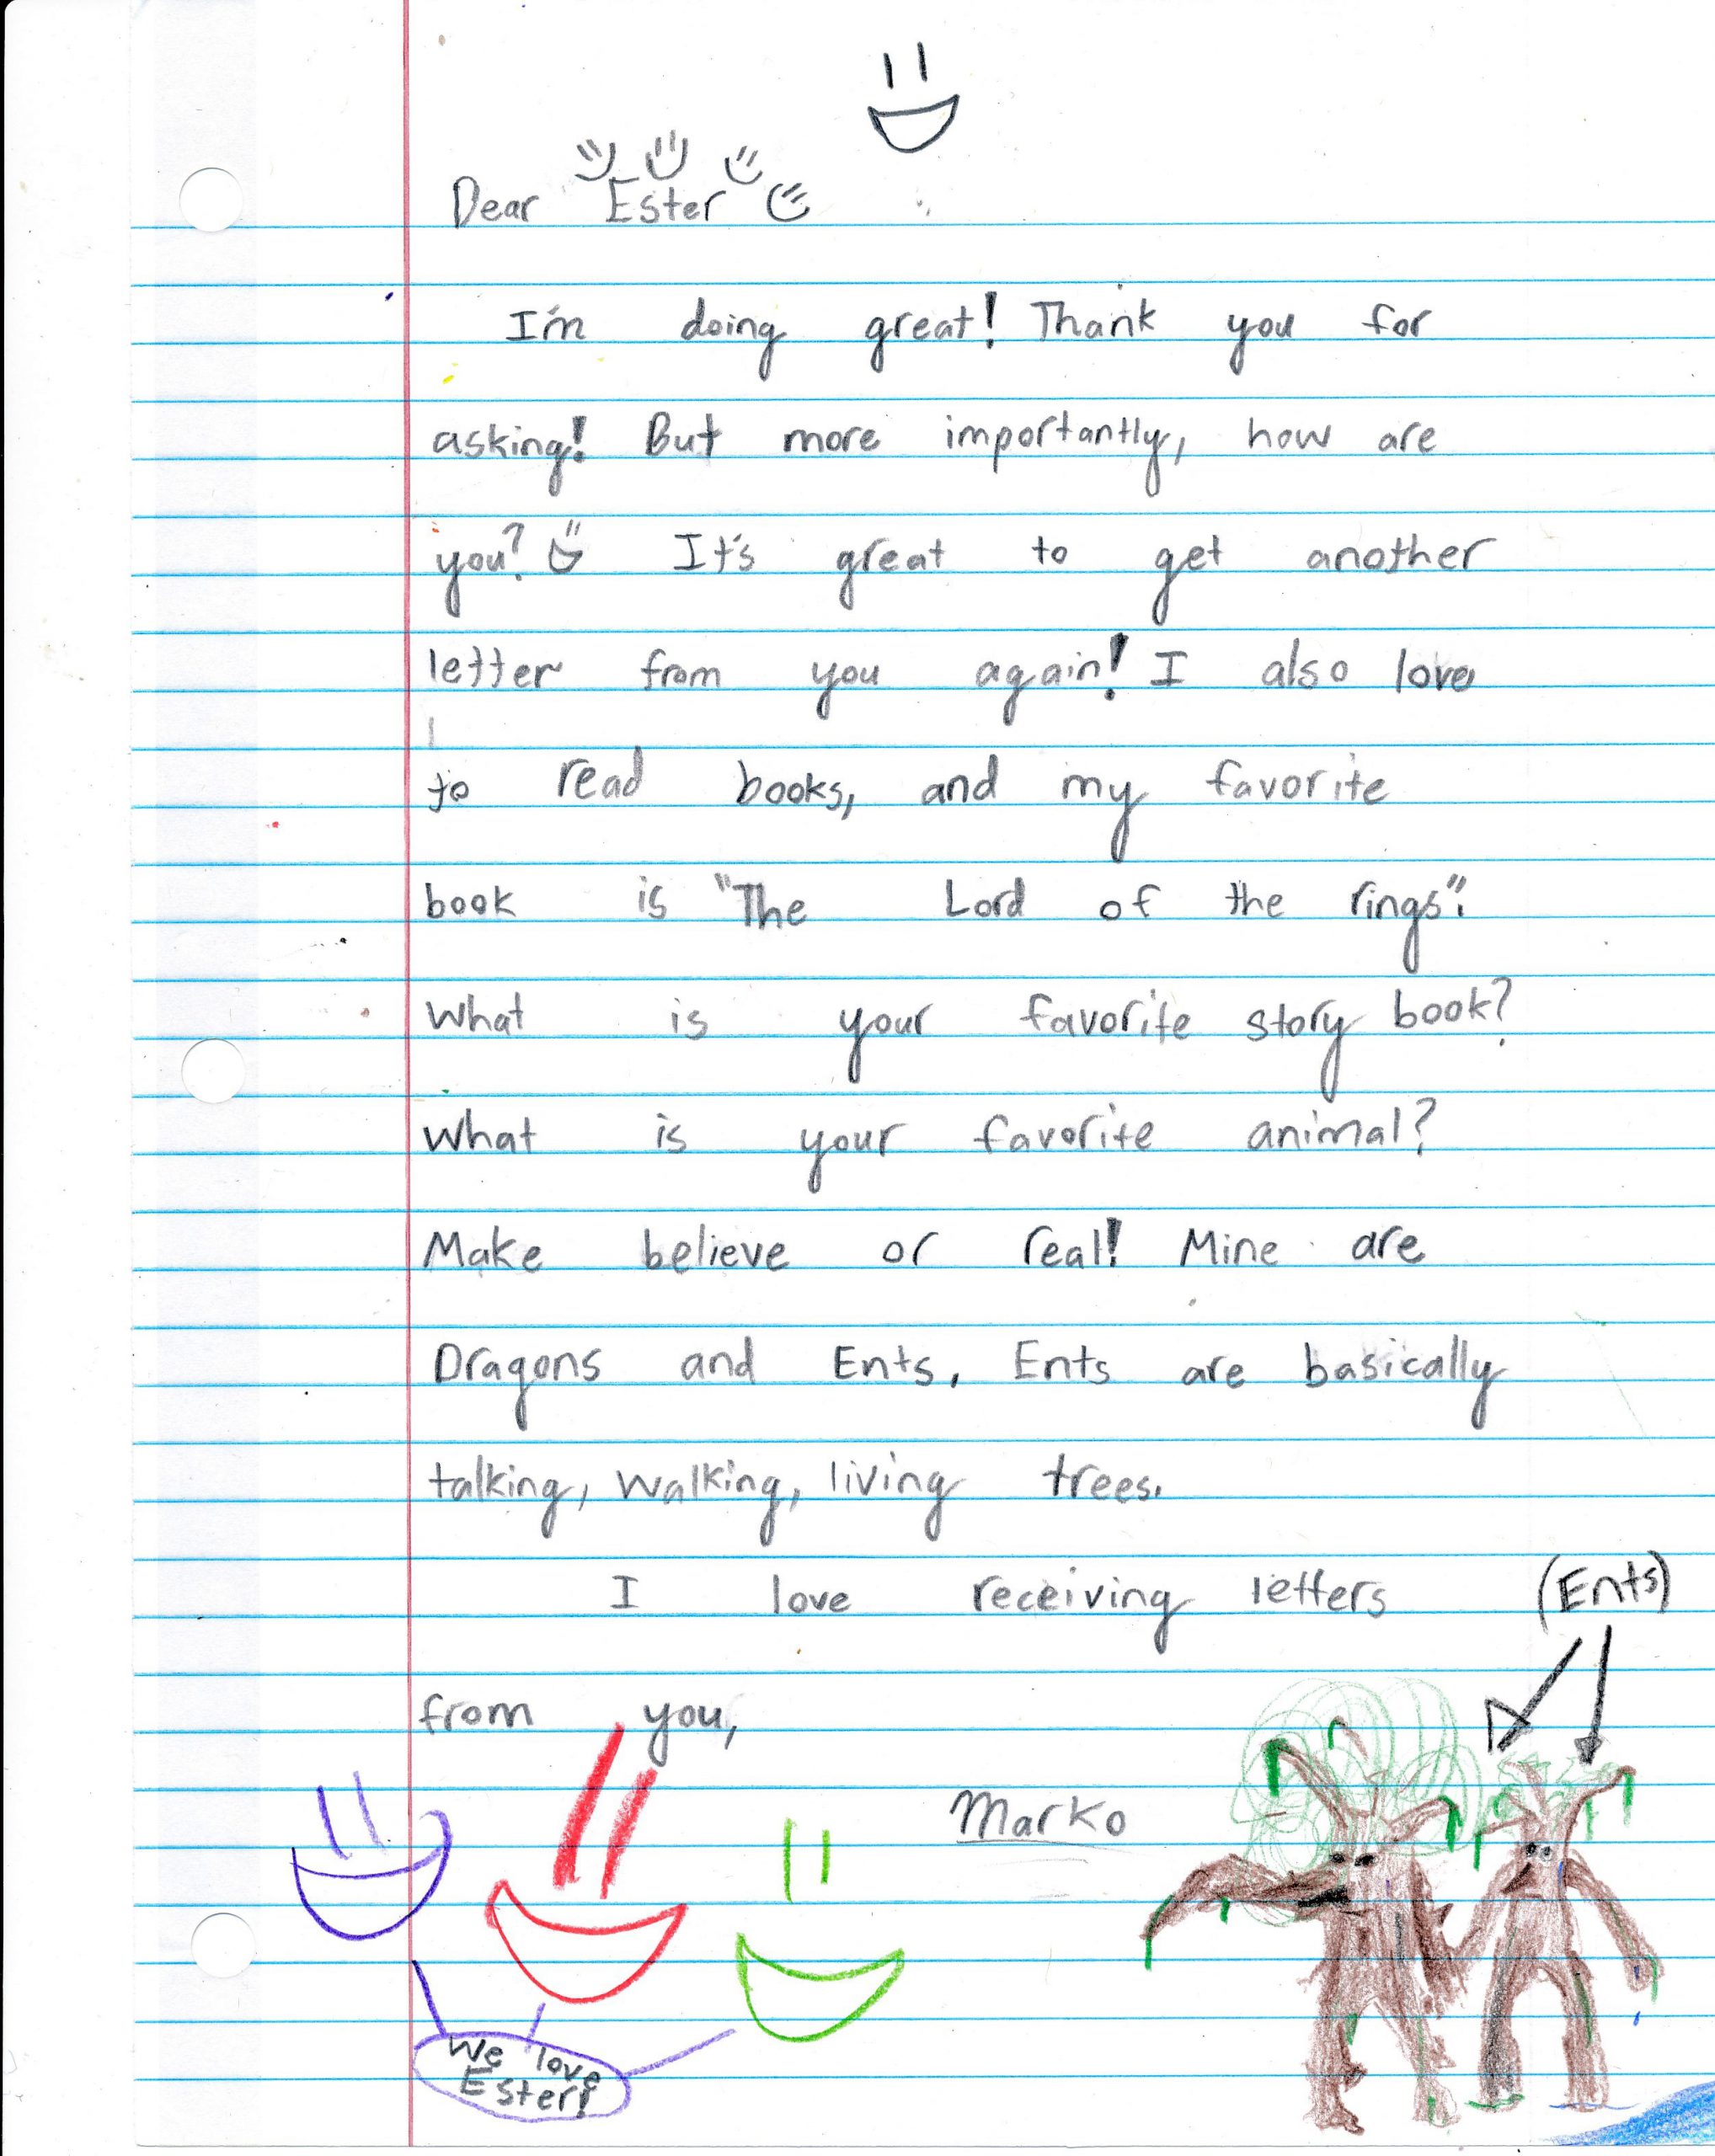 Dear Ester
I'm doing great! Thank you for
asking! But more importantly, how are
you? It's great to get another
letter from you again! I also love
to read books, and my favorite
book is "The Lord of the rings".
What is your favorite story book?
What is your favorite animal?
Make believe or real! Mine are
Dragons and Ents, Ents are basically
talking, walking, living trees.
I love receiving letters
from you,
(Ents)
Marko
We love
Ester!